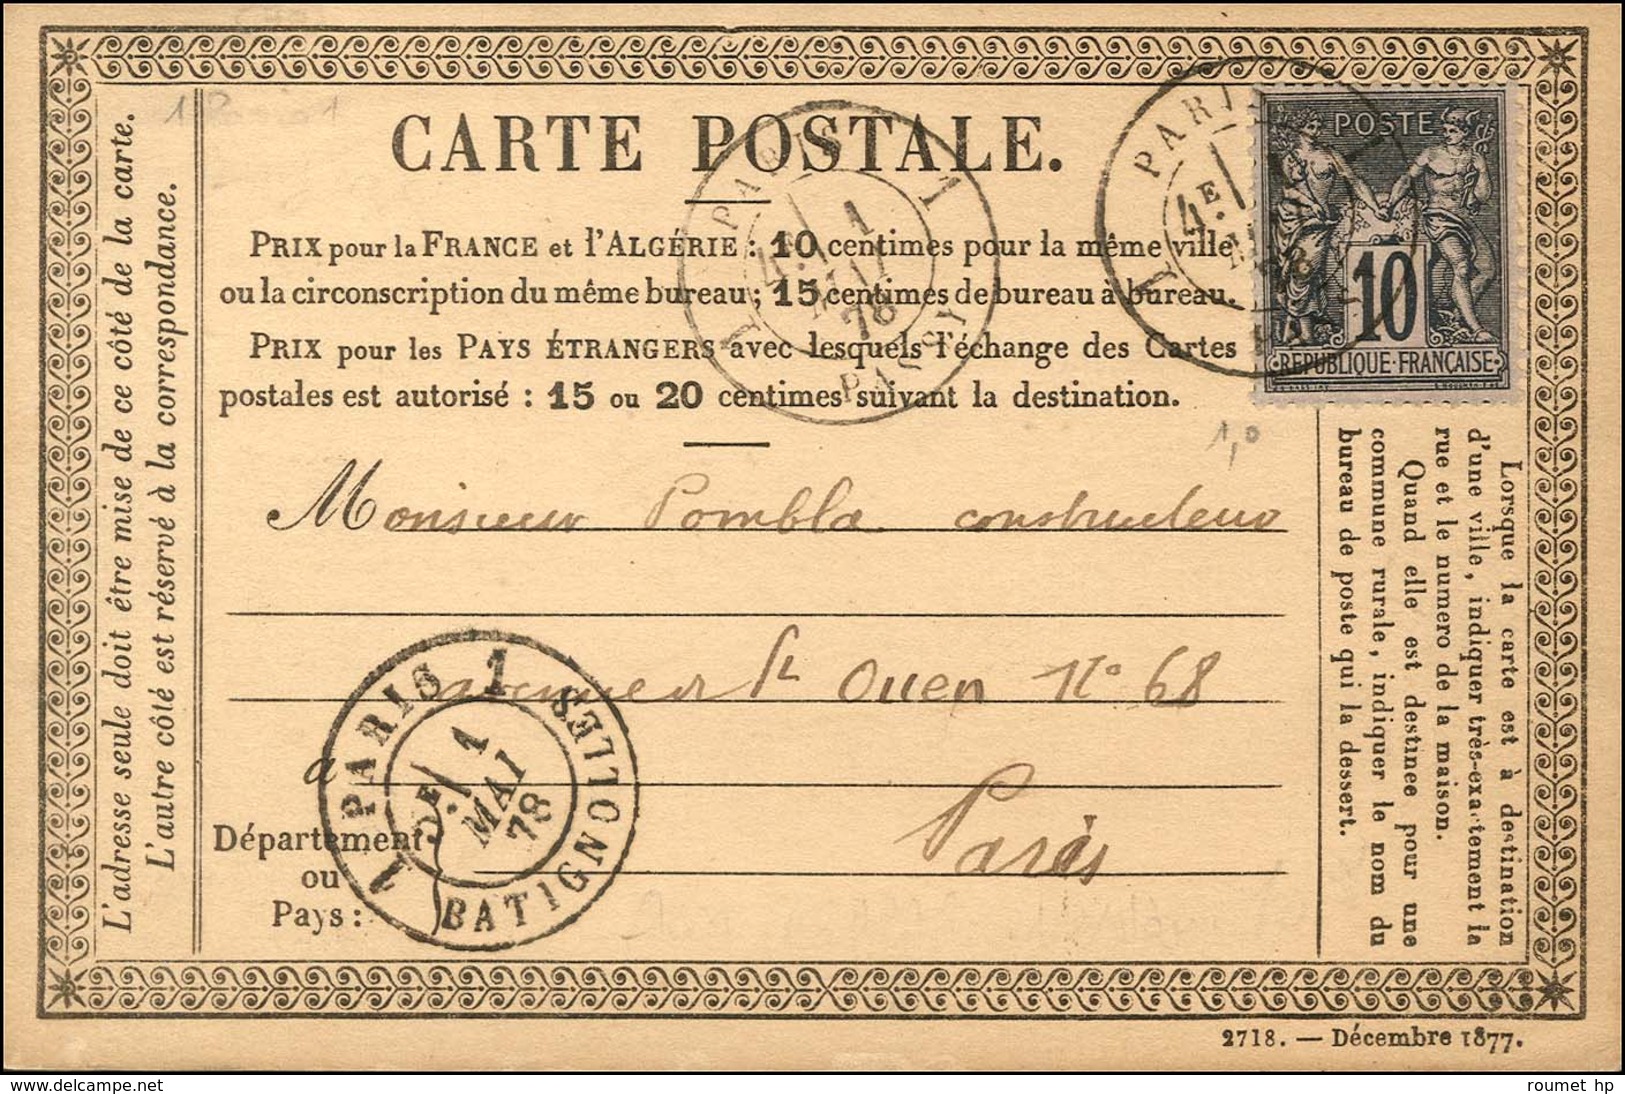 CARTE POSTALE.
PRIX pour la FRANCE et l'ALGÉRIE : 10 centimes pour la même ville
ou la circonscription du même bureau ; 15 centimes de bureau à bureau.
PRIX pour les PAYS ÉTRANGERS avec lesquels l'échange des Cartes
postales est autorisé : 15 ou 20 centimes suivant la destination.
L'adresse seule doit être mise de ce côté de la carte.
L'autre côté est réservé à la correspondance.
PARIS 1
4E
1
MAI
78
PASSY
PARIS 1
4E
POSTE
10
REPUBLIQUE FRANÇAISE
1,0
Monsieur Pombla constructeur
avenue de St Ouen No 68
a
Paris
Département
ou
Pays :
PARIS 1
1
MAI
78
BATIGNOLLES
Lorsque la carte est à destination
d'une ville, indiquer très-exactement la
rue et le numero de la maison.
Quand elle est destinee pour une
commune rurale, indiquer le nom du
bureau de poste qui la dessert.
2718. — Décembre 1877.
roumet hp